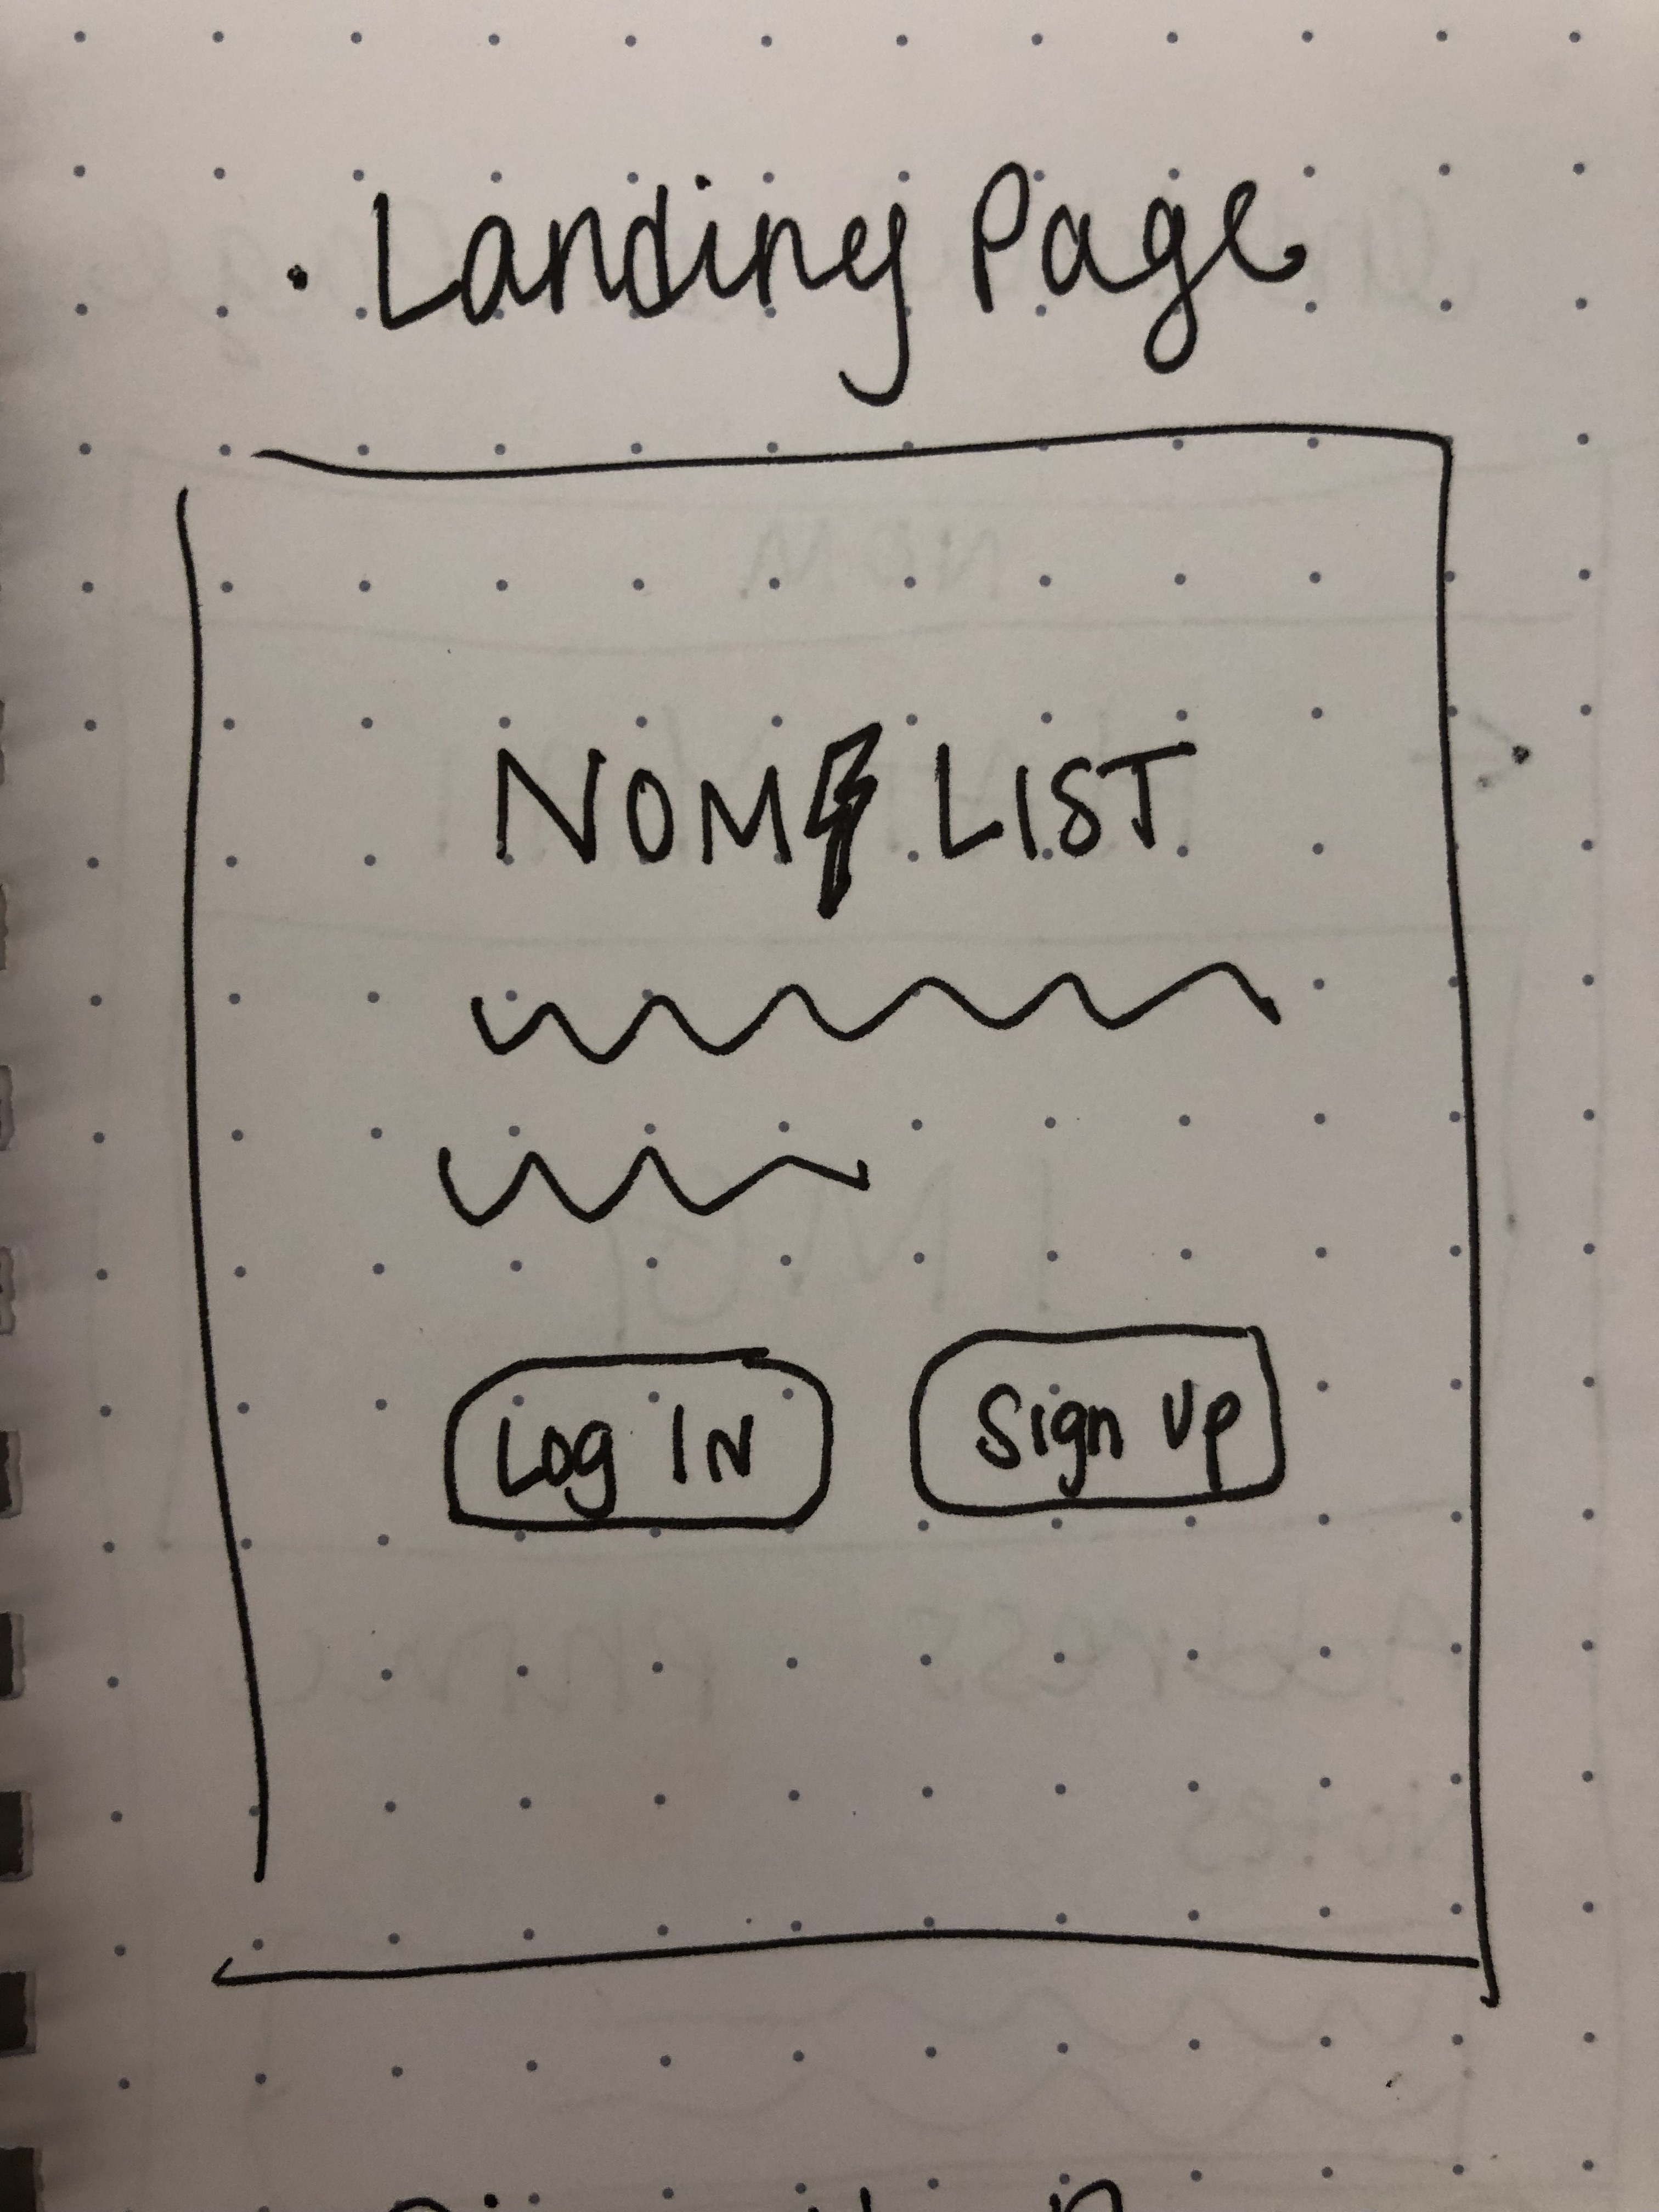 . Landing Page.
NOM⚡LIST
Log IN
Sign Up